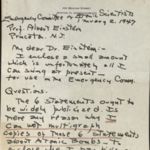 Emergency Committee of Atomic Scientists
Prof. Albert Einstein
Princeton, N.J.
My dear Dr. Einstein:-
I enclose a small amount
which is unfortunately all I
can give at present —
for use in the Emergency Comm.
Question.
The 6 statements ought to
be widely publicized. Is
there any reason why I
can not multigraph
copies of those 6 statements
about Atomic Bombs - to